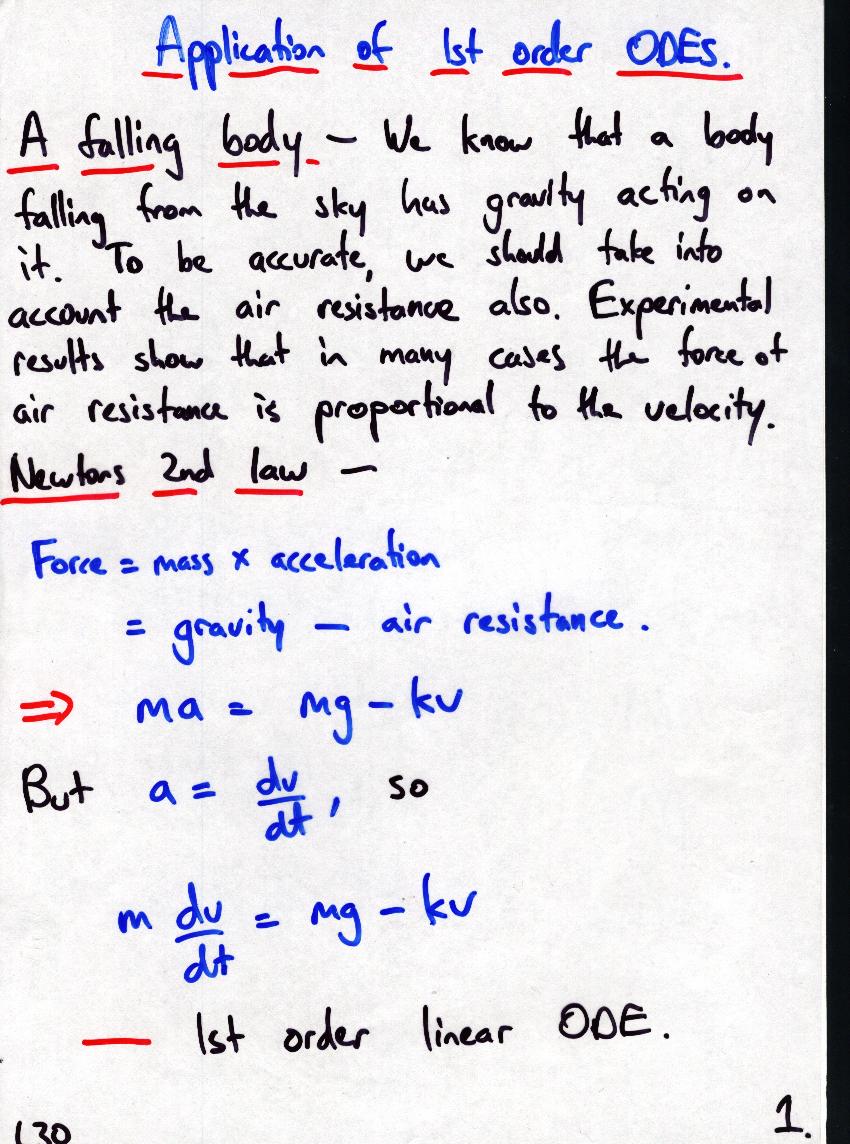 Application of 1st order ODEs.
A falling body. – We know that a body
falling from the sky has gravity acting on
it. To be accurate, we should take into
account the air resistance also. Experimental
results show that in many cases the force of
air resistance is proportional to the velocity.
Newtons 2nd law –
Force = mass x acceleration
= gravity – air resistance.
⇒ ma = mg - kv
But a = dv/dt, so
m dv/dt = mg - kv
— 1st order linear ODE.
1.